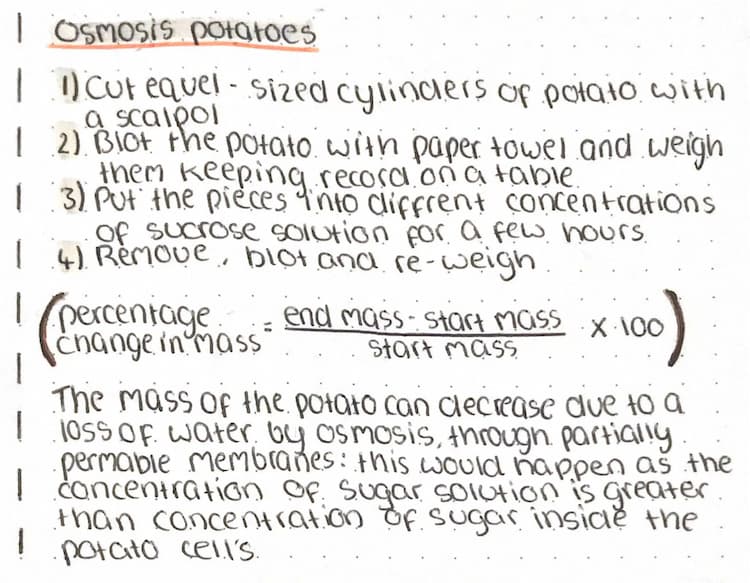 Osmosis potatoes
1) Cut equel - sized cylinders of potato with
a scalpol
2) Blot the potato with paper towel and weigh
them keeping record on a table
3) Put the pieces into diffrent concentrations
of sucrose solution for a few hours
4) Remove, blot and re-weigh
(percentage change in mass = end mass - start mass / start mass x 100)
The mass of the potato can decrease due to a
loss of water by osmosis, through partially
permable membranes: this would happen as the
concentration of sugar solution is greater
than concentration of sugar inside the
potato cell's